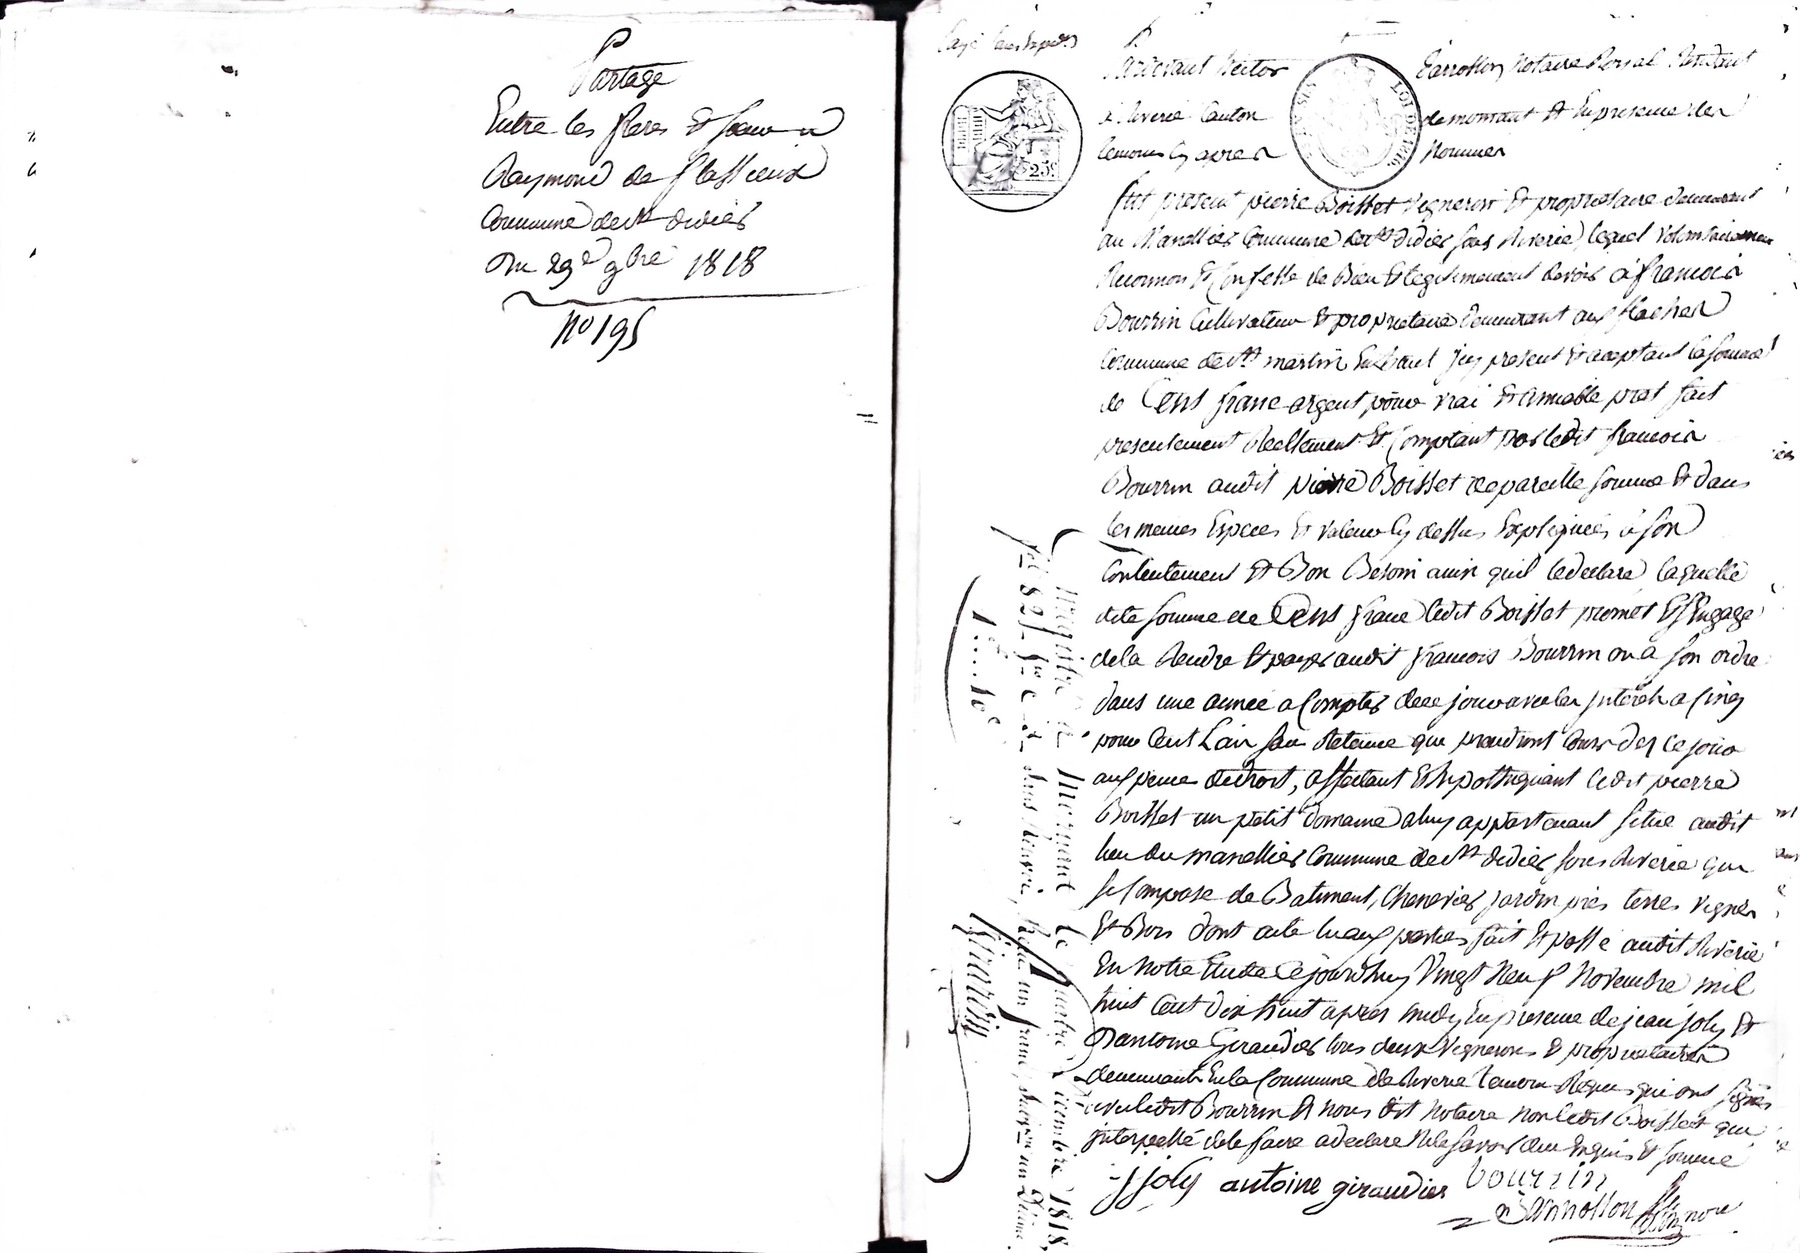 Partage
Entre les freres & soeur
Raymond de flassieux
Commune de st didier
Du 29e 9bre 1818
no 195
Pardevant hector Dannollon, notaire Royal Residant
à Riverie Canton de mornant Et En presence des
temoins Cy apres Nommes
25c
LOI DE 1816
fut present pierre Boisset vigneron Et propriétaire demeurant
au Manellier Commune de st didier sous Riverie, lequel volontairement
Reconnoit Et Confesse de Bien Et legitimement devoir à francois
Bourrin Cultivateur & propriétaire demeurant aux flaches
Commune de st martin En haut jcy present Et aceptant la somme
de Cent franc argent pour vrai Et amiable pret fait
presentement Reellement Et Comptant par ledit francois
Bourrin audit pierre Boisset de pareille somme Et dans
les memes Especes Et valeur Cy dessus Expliquées à son
Contentement Et Bon Besoin ainsi quil le declare laquelle
dite somme de Cent franc ledit Boisset promet Et s'Engage
de la Rendre Et payer audit francois Bourrin ou à son ordre
dans une année a Compter de ce jour avec les jnterets a Cinq
pour Cent L'an sans Retenue qui prendront Cours des ce jour
aux peine de droit, affectant Et hipothequant ledit pierre
Boisset un petit domaine a luy appartenant situé audit
lieu du manellier Commune de st didier sous Riverie qui
se Compose de Batiment, Chenevier jardin prés terres vignes
Et Bois dont acte lu aux parties fait Et passé audit Riverie
En notre Etude Cejourdhuy Vingt Neuf Novembre mil
huit Cent dix huit apres midy En presence de jean joly Et
Dantoine Giraudier tous deux vignerons & propriétaires
demeurants En la Commune de Riverie temoins Requis qui ont signés
avec ledit Bourrin & nous dit notaire non ledit Boisset qui
jnterpellé de le faire a declaré Ne le savoir de ce Enquis & sommé
j joly antoine giraudier bourrin
Dannollon nore
Enregistré à Mornant le quatre Decembre 1818,
fol 89 Reçu un franc, dixme un Décime
1f.. 10c